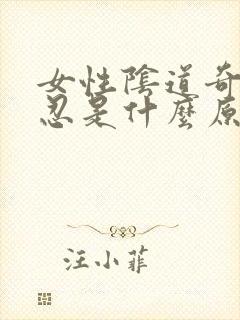 女性陰道奇
忍是什麼原
汪小菲